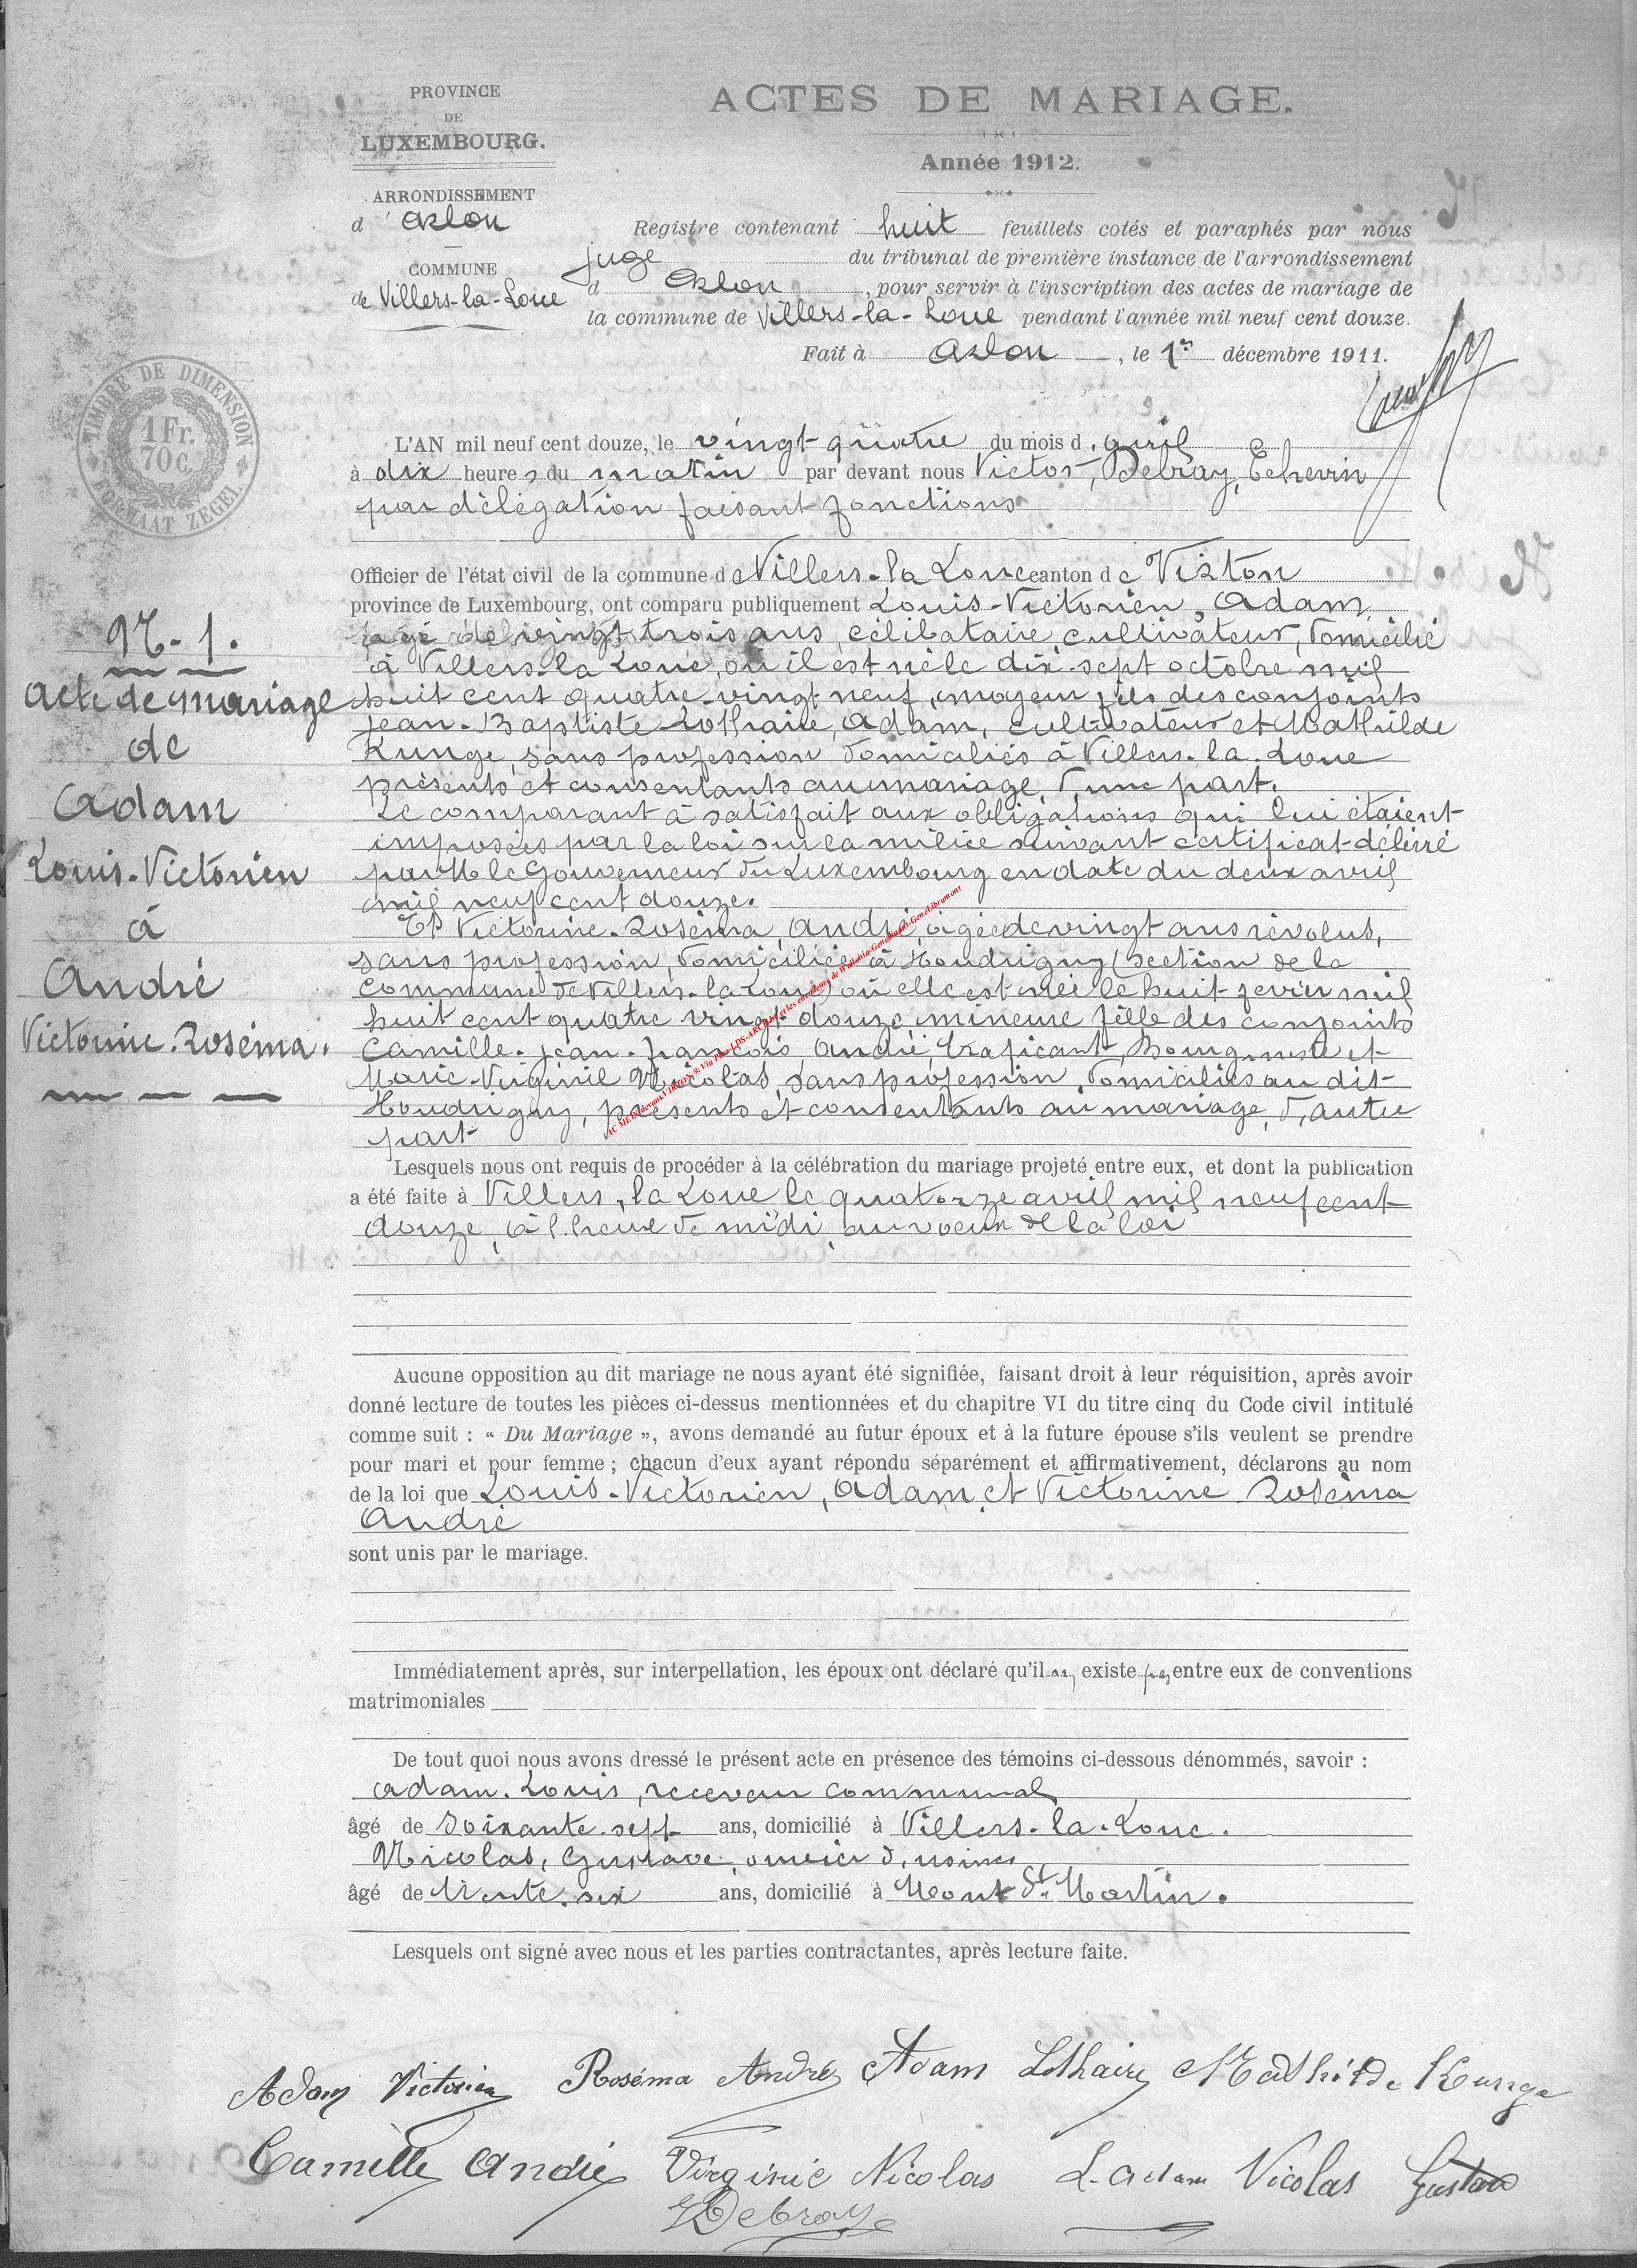 PROVINCE
DE
LUXEMBOURG.
ARRONDISSEMENT
d'Arlon
COMMUNE
de Villers-la-Loue
ACTES DE MARIAGE.
Année 1912.
Registre contenant huit feuillets cotés et paraphés par nous
juge du tribunal de première instance de l'arrondissement
d Arlon, pour servir à l'inscription des actes de mariage de
la commune de Villers-la-Loue pendant l'année mil neuf cent douze.
Fait à Arlon, le 1er décembre 1911.
TIMBRE DE DIMENSION
1 Fr.
70 C.
FORMAAT ZEGEL
L'AN mil neuf cent douze, le vingt-quatre du mois d'avril
à dix heures du matin par devant nous Victor, Debray, Echevin
par délégation faisant fonctions
Officier de l'état civil de la commune de Villers-la Loue canton de Virton
province de Luxembourg, ont comparu publiquement Louis-Victorien, Adam
âgé de vingt trois ans, célibataire, cultivateur, domicilié
à Villers-la Loue, où il est né le dix-sept octobre mil
huit cent quatre-vingt-neuf, moyeur fils des conjoints
Jean-Baptiste Lothaire, Adam, cultivateur et Mathilde
Kunge, sans profession domiciliés à Villers-la-Loue
présents et consentants au mariage, d'une part.
Le comparant à satisfait aux obligations qui lui étaient
imposées par la loi sur la milice suivant certificat délivré
par M le Gouverneur du Luxembourg en date du deux avril
mil neuf cent douze.
Et Victorine-Roséma, André, âgée de vingt ans révolus,
sans profession, domiciliée à Houdrigny (section de la
commune de Villers-la Loue) où elle est née le huit fevrier mil
huit cent quatre vingt-douze, mineure fille des conjoints
Camille-Jean-François, André, trafiquant, Bourgmestre et
Marie-Virginie Nicolas, sans profession, domiciliés au dit
Houdrigny, présents et consentants au mariage, d'autre
part
AC MEIX devant VIRTON
N-1.
Acte de Mariage
de
Adam
Louis-Victorien
à
André
Victorine-Roséma.
Lesquels nous ont requis de procéder à la célébration du mariage projeté entre eux, et dont la publication
a été faite à Villers-la Loue le quatorze avril mil neuf cent
douze, à l'heure de midi, au voeux de la loi
Aucune opposition au dit mariage ne nous ayant été signifiée, faisant droit à leur réquisition, après avoir
donné lecture de toutes les pièces ci-dessus mentionnées et du chapitre VI du titre cinq du Code civil intitulé
comme suit : « Du Mariage », avons demandé au futur époux et à la future épouse s'ils veulent se prendre
pour mari et pour femme ; chacun d'eux ayant répondu séparément et affirmativement, déclarons au nom
de la loi que Louis-Victorien, Adam et Victorine Roséma
André
sont unis par le mariage.
Immédiatement après, sur interpellation, les époux ont déclaré qu'il n'y existe pas entre eux de conventions
matrimoniales
De tout quoi nous avons dressé le présent acte en présence des témoins ci-dessous dénommés, savoir :
Adam. Louis, receveur communal
âgé de soixante-sept ans, domicilié à Villers-la-Loue.
Nicolas, Gustave, ouvrier d'usines
âgé de trente-six ans, domicilié à Mont St Martin.
Lesquels ont signé avec nous et les parties contractantes, après lecture faite.
Adam Victorien Roséma André Adam Lothaire Mathilde Kunge
Camille André Virginie Nicolas L. Adam Nicolas Gustave
V Debray